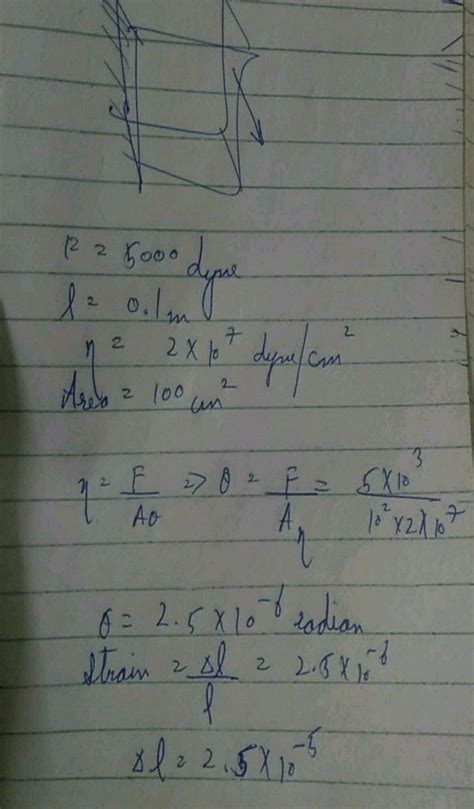 F = 5000 dyne
l = 0.1 m
η = 2 × 10⁷ dyne/cm²
Area = 100 cm²
η = F/Aθ => θ = F/Aη = 5×10³/10²×2×10⁷
θ = 2.5×10⁻⁶ radian
Strain = Δl/l = 2.5×10⁻⁶
Δl = 2.5×10⁻⁵